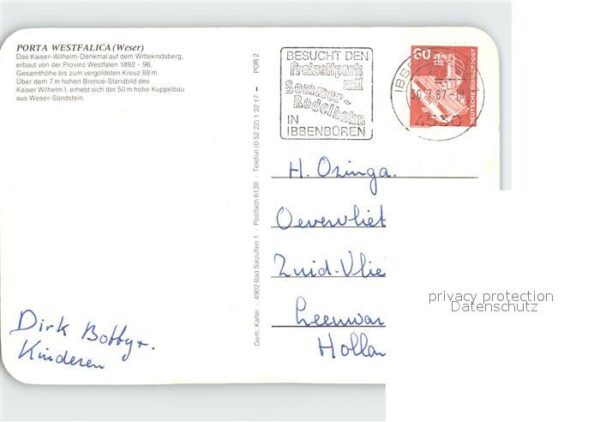 PORTA WESTFALICA (Weser)
Das Kaiser-Wilhelm-Denkmal auf dem Wittekindsberg,
erbaut von der Provinz Westfalen 1892 - 96.
Gesamthöhe bis zum vergoldeten Kreuz 88 m.
Über dem 7 m hohen Bronce-Standbild des
Kaiser Wilhelm I. erhebt sich der 50 m hohe Kuppelbau
aus Weser-Sandstein.
Gerh. Kaller · 4902 Bad Salzuflen 1 · Postfach 6130 · Telefon (0 52 22) 1 32 17 – POR 2
BESUCHT DEN
Freizeitpark
mit
Sommer-
Rodelbahn
IN
IBBENBÜREN
60
DEUTSCHE BUNDESPOST
IBB
30.7.87
4530
H. Osinga.
Oevervliet
Zuid-Vlie
Leenwar
Hollan
Dirk Bobby+.
Kinderen
privacy protection
Datenschutz